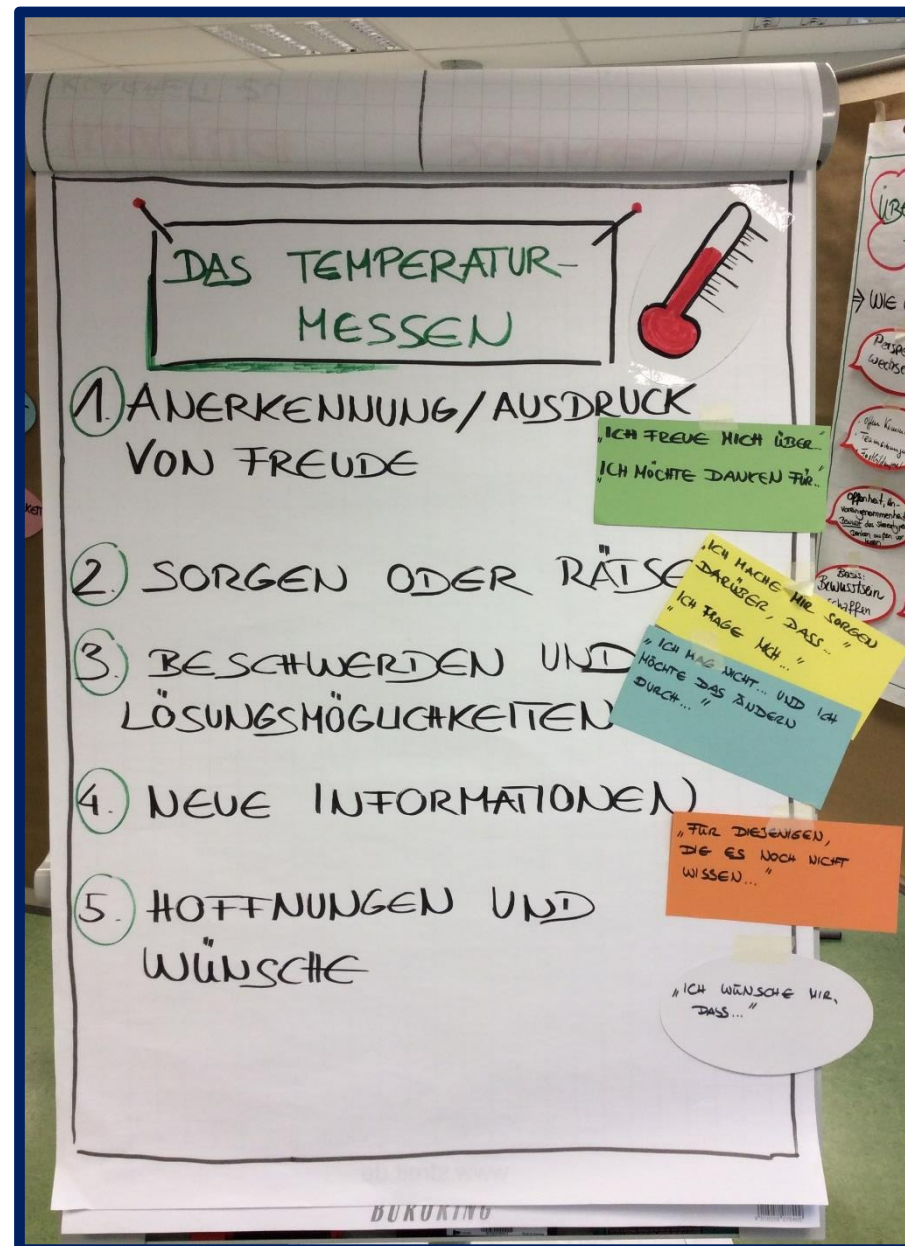 DAS TEMPERATUR-
MESSEN
1. ANERKENNUNG/AUSDRUCK
VON FREUDE
„ICH FREUE MICH ÜBER..“
„ICH MÖCHTE DANKEN FÜR..“
2. SORGEN ODER RÄTSE
„ICH MACHE MIR SORGEN
DARÜBER, DASS..“
„ICH FRAGE MICH...“
3. BESCHWERDEN UND
LÖSUNGSMÖGLICHKEITEN
„ICH MAG NICHT... UND ICH
MÖCHTE DAS ÄNDERN
DURCH...“
4. NEUE INFORMATIONEN
„FÜR DIEJENIGEN,
DIE ES NOCH NICHT
WISSEN...“
5. HOFFNUNGEN UND
WÜNSCHE
„ICH WÜNSCHE MIR,
DASS...“
BÜROKING
ÜBE
⇒ WIE
Perspe
wechse
Offenheit, Un-
Basis:
Bewusstsein
schaffen